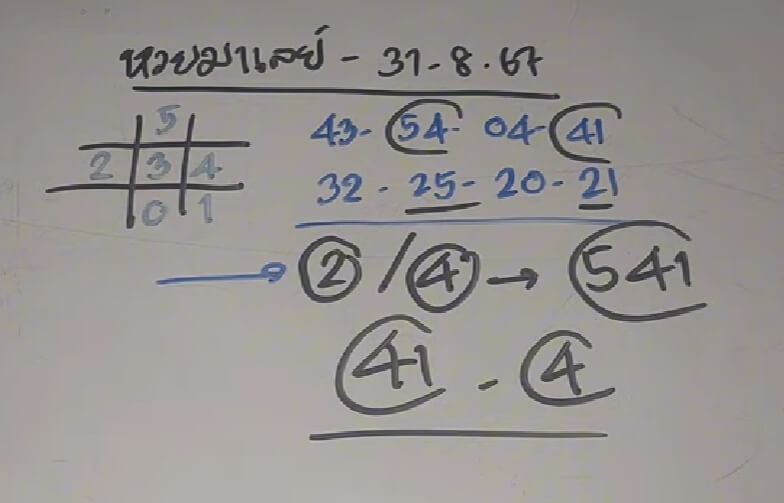 หวยมาเลย์ - 31-8.67
5
2 3 4
0 1
43- 54- 04- 41
32 - 25- 20 - 21
2 / 4 → 541
41 - 4